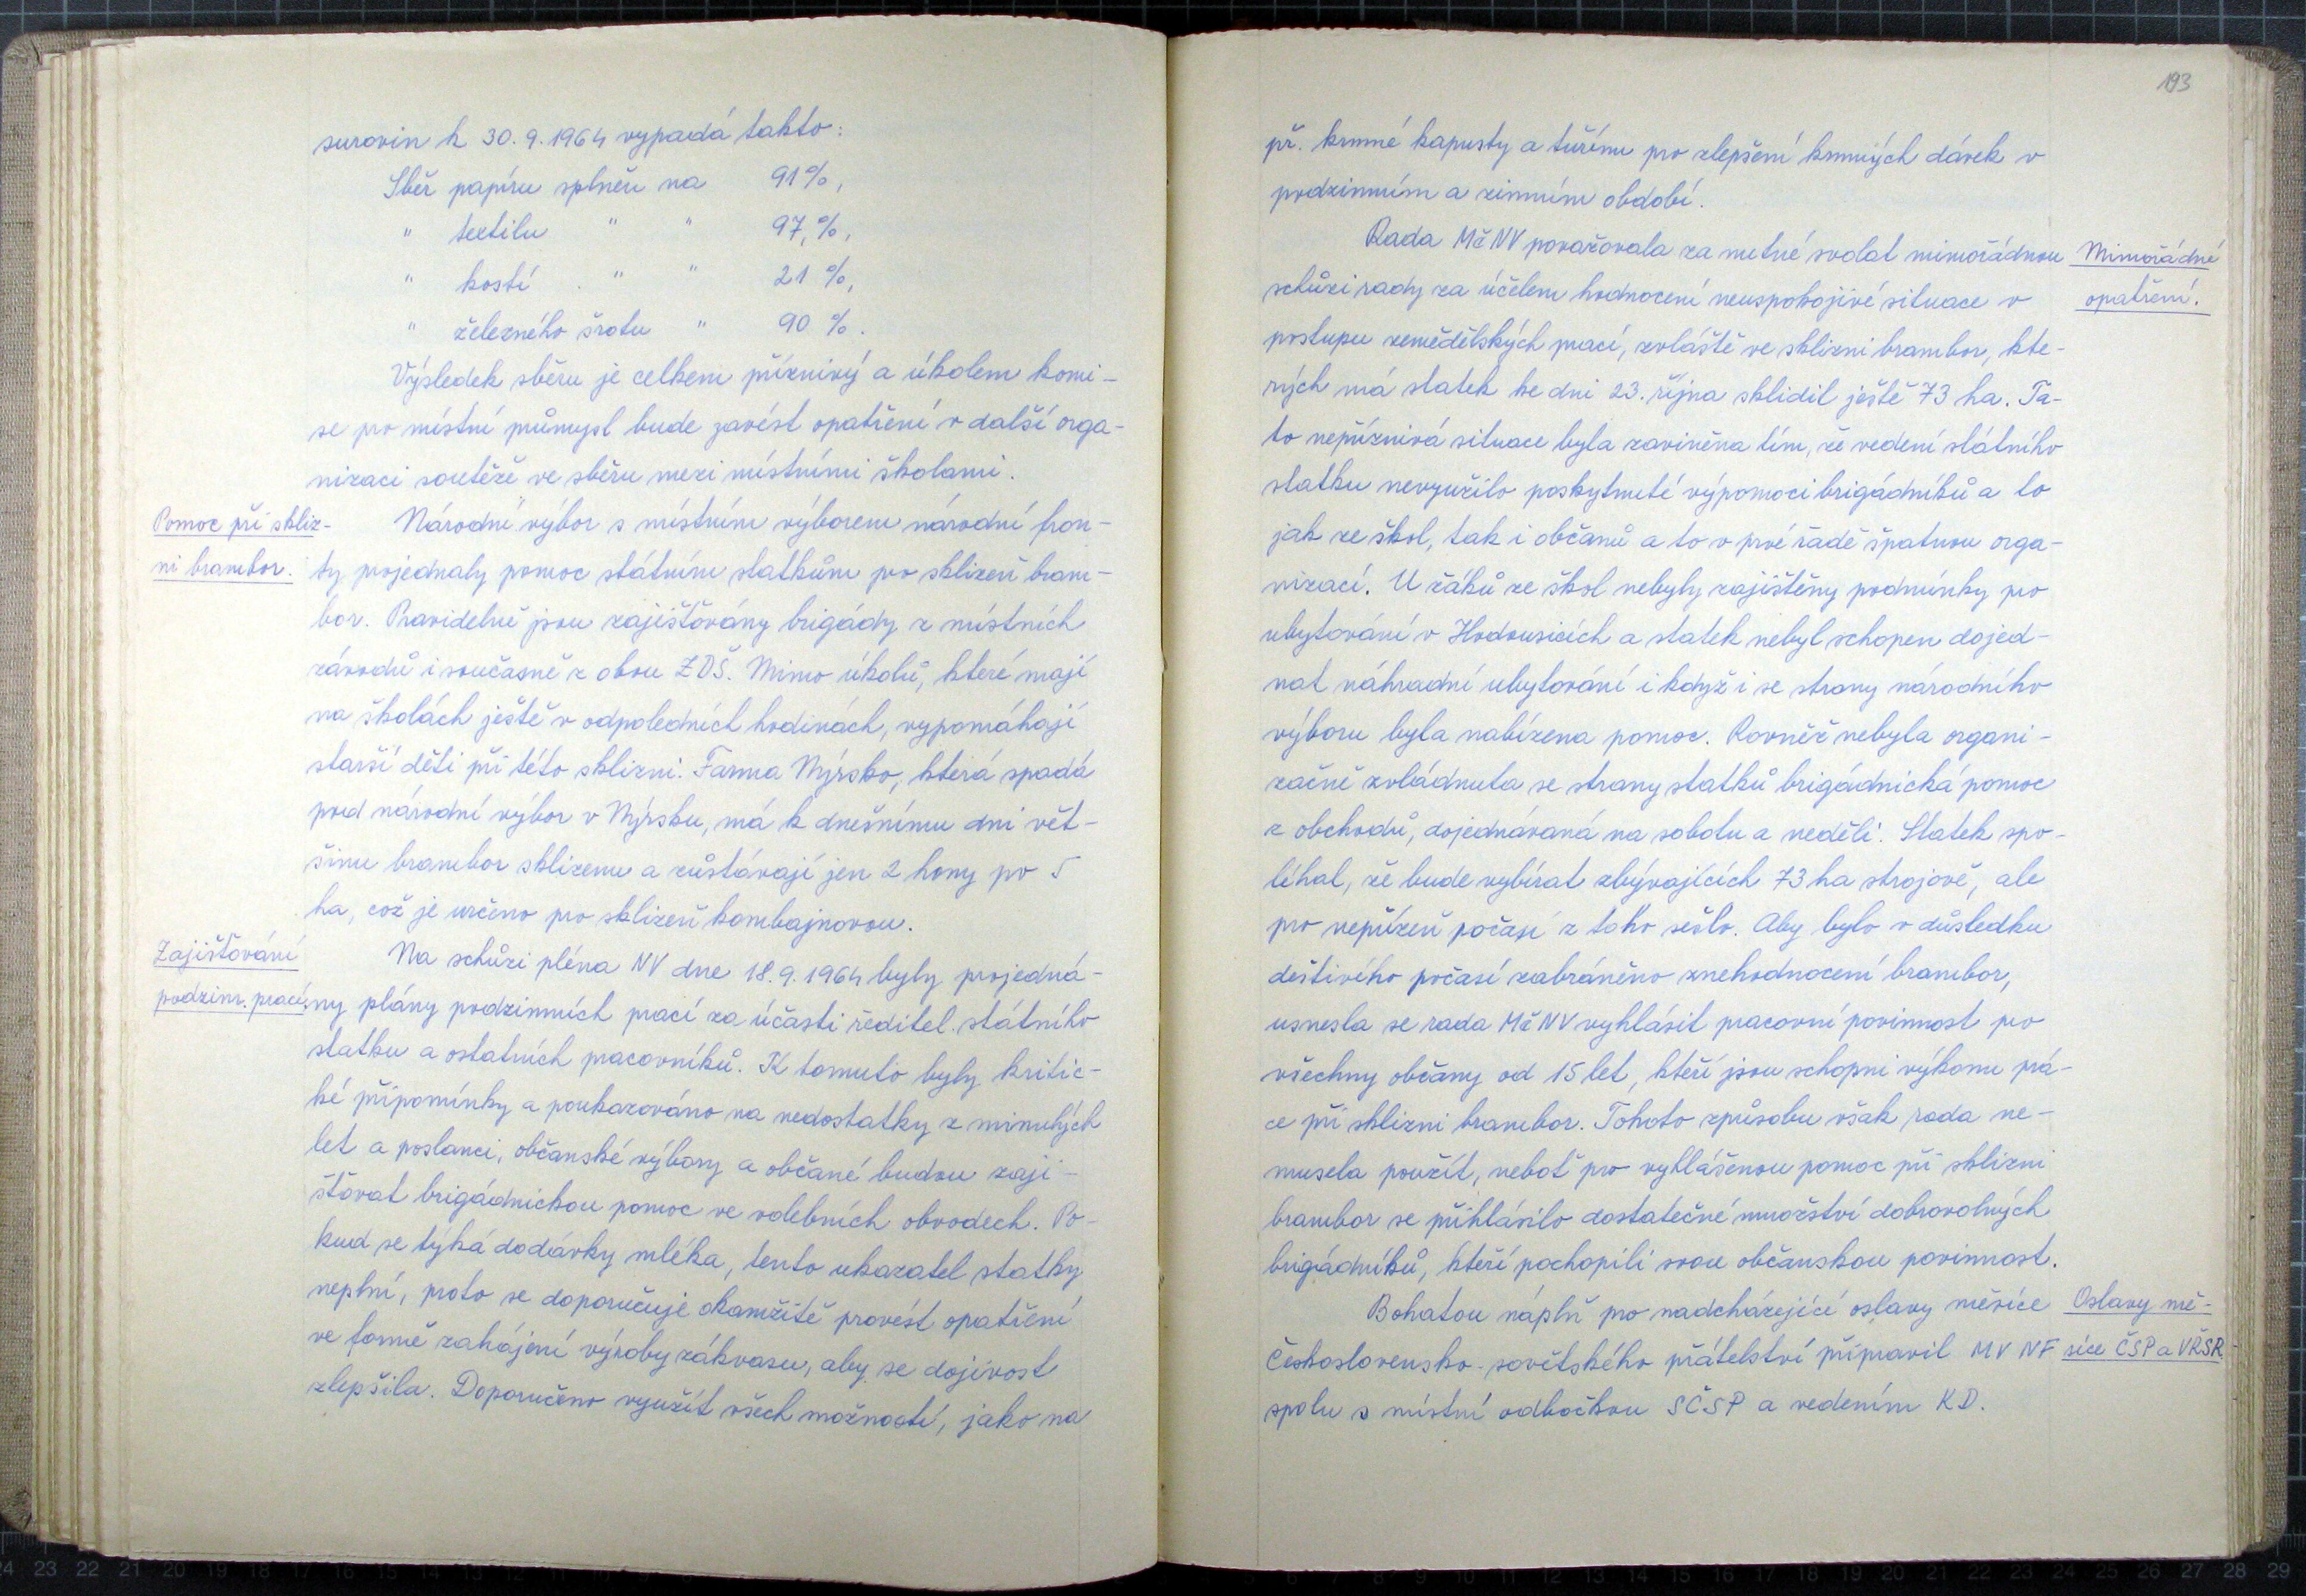 surovin k 30.9.1964 vypadá takto:
Sběr papíru splněn na 91%,
" textilu " " 97,%,
" kostí " " 21 %,
" železného šrotu " 90 %.
Výsledek sběru je celkem příznivý a úkolem komi-
se pro místní průmysl bude zavést opatření v další orga-
nizaci soutěže ve sběru mezi místními školami.
Pomoc při skliz-
ni brambor.
Národní výbor s místním výborem národní fron-
ty projednaly pomoc státním statkům pro sklizeň bram-
bor. Pravidelně jsou zajišťovány brigády z místních
závodů i současně z obou ZDŠ. Mimo úkolů, které mají
na školách ještě v odpoledních hodinách, vypomáhají
starší děti při této sklizni. Farma Nýrsko, která spadá
pod národní výbor v Nýrsku, má k dnešnímu dni vět-
šinu brambor sklizenu a zůstávají jen 2 hony po 5
ha, což je určeno pro sklizeň kombajnovou.
Zajišťování
podzimn. prací.
Na schůzi pléna NV dne 18.9.1964 byly projedná-
ny plány podzimních prací za účasti ředitel. státního
statku a ostatních pracovníků. K tomuto byly kritic-
ké připomínky a poukazováno na nedostatky z minulých
let a poslanci, občanské výbory a občané budou zaji-
šťovat brigádnickou pomoc ve volebních obvodech. Po-
kud se týká dodávky mléka, tento ukazatel statky
neplní, proto se doporučuje okamžitě provést opatření
ve formě zahájení výroby zákvasu, aby se dojivost
zlepšila. Doporučeno využít všech možností, jako na
193
př. krmné kapusty a tuřínu pro zlepšení krmných dávek v
podzimním a zimním období.
Rada MěNV považovala za nutné svolat mimořádnou
Mimořádné
opatření.
schůzi rady za účelem hodnocení neuspokojivé situace v
postupu zemědělských prací, zvláště ve sklizni brambor, kte-
rých má statek ke dni 23. října sklidit ještě 73 ha. Ta-
to nepříznivá situace byla zaviněna tím, že vedení státního
statku nevyužilo poskytnuté výpomoci brigádníků a to
jak ze škol, tak i občanů a to v prvé řadě špatnou orga-
nizací. U žáků ze škol nebyly zajištěny podmínky pro
ubytování v Hodousicích a statek nebyl schopen dojed-
nat náhradní ubytování i když i se strany národního
výboru byla nabízena pomoc. Rovněž nebyla organi-
začně zvládnuta se strany statků brigádnická pomoc
z obchodů, dojednávaná na sobotu a neděli. Statek spo-
léhal, že bude vybírat zbývajících 73 ha strojově, ale
pro nepřízeň počasí z toho sešlo. Aby bylo v důsledku
deštivého počasí zabráněno znehodnocení brambor,
usnesla se rada MěNV vyhlásit pracovní povinnost pro
všechny občany od 15 let, kteří jsou schopni výkonu prá-
ce při sklizni brambor. Tohoto způsobu však rada ne-
musela použít, neboť pro vyhlášenou pomoc při sklizni
brambor se přihlásilo dostatečné množství dobrovolných
brigádníků, kteří pochopili svou občanskou povinnost.
Bohatou náplň pro nadcházející oslavy měsíce
Oslavy mě-
síce ČSP a VŘSR
Československo-sovětského přátelství připravil MV NF
spolu s místní odbočkou SČSP a vedením KD.